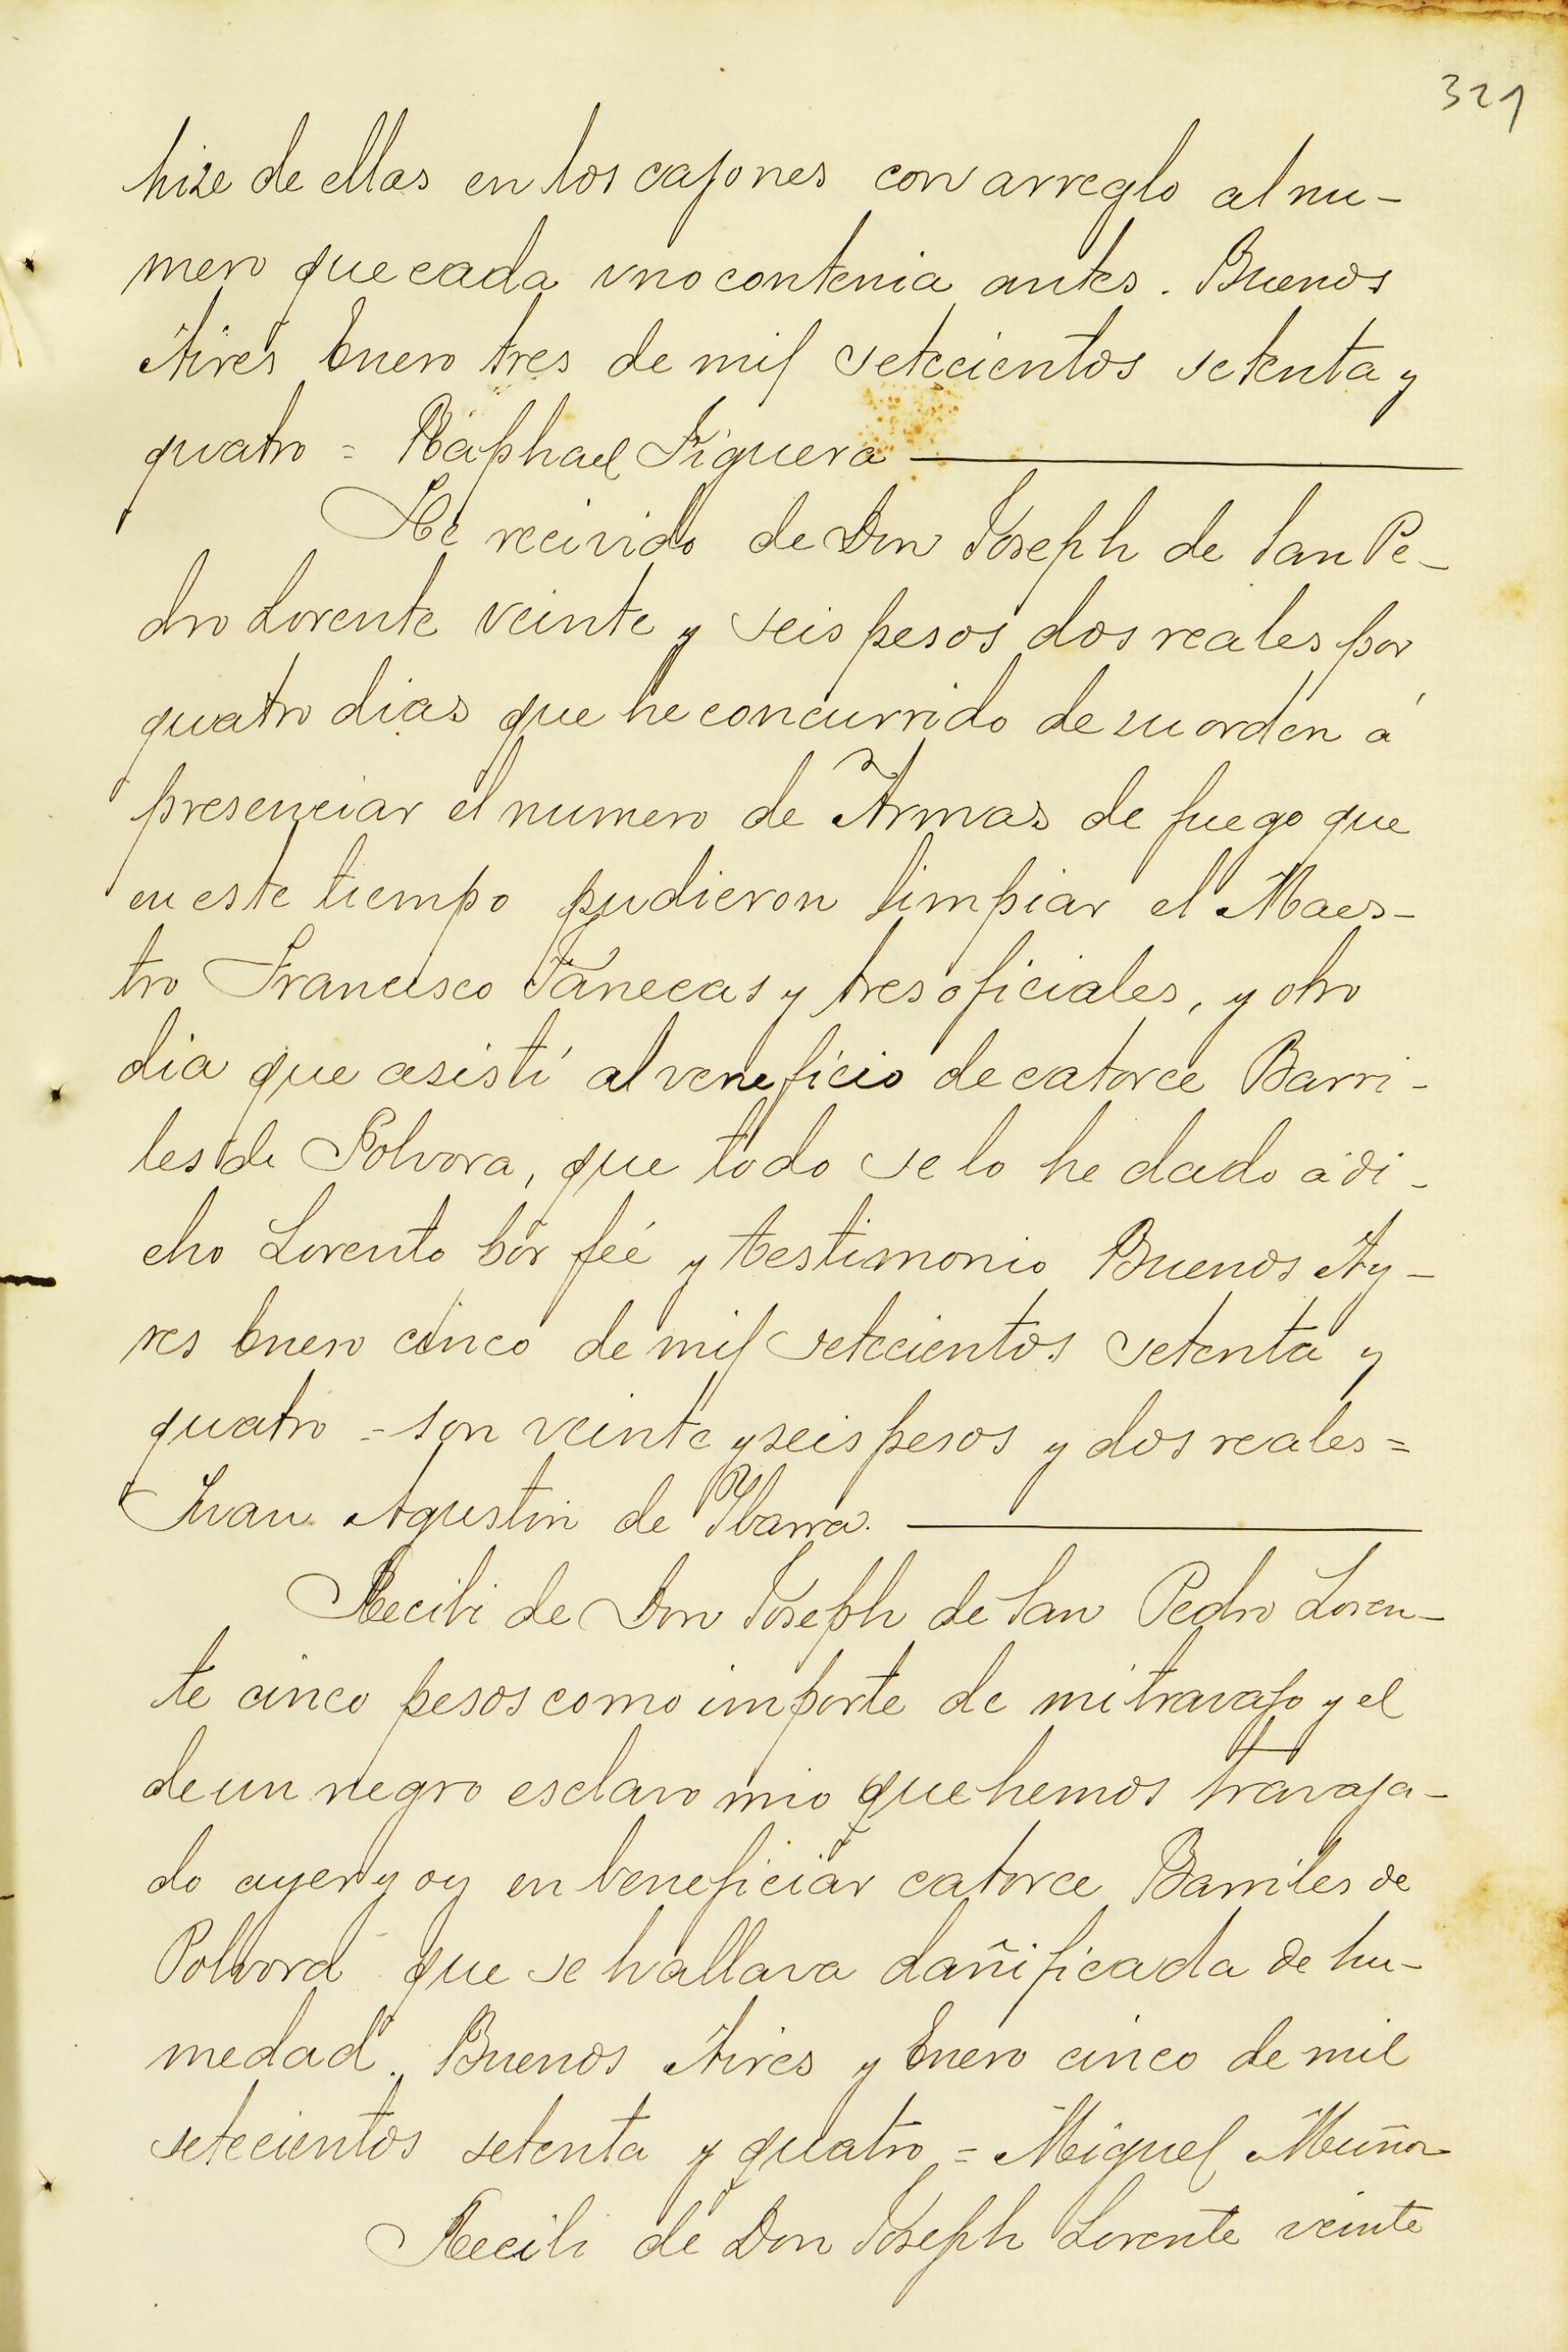 321
hize de ellas en los cajones con arreglo al nu-
mero que cada uno contenia antes. Buenos
Aires Enero tres de mil setecientos setenta y
quatro = Raphael Figuera
He recivido de Don Joseph de San Pe-
dro Lorente veinte y seis pesos dos reales por
quatro dias que he concurrido de su orden á
presenciar el numero de Armas de fuego que
en este tiempo pudieron limpiar el Maes-
tro Francisco Vanecas y tres oficiales, y otro
dia que asistí al veneficio de catorce Barri-
les de Polvora, que todo se lo he dado a di-
cho Lorento por feé y testimonio Buenos Ay-
res Enero cinco de mil setecientos setenta y
quatro = son veinte y seis pesos y dos reales =
Juan Agustin de Ybarra.
Recibi de Don Joseph de San Pedro Loren-
te cinco pesos como importe de mi travajo y el
de un negro esclavo mio que hemos travaja-
do ayer y oy en beneficiar catorce Barriles de
Polvora que se hallava dañificada de hu-
medad. Buenos Aires y Enero cinco de mil
setecientos setenta y quatro = Miguel Muñoz
Recibi de Don Joseph Lorente veinte